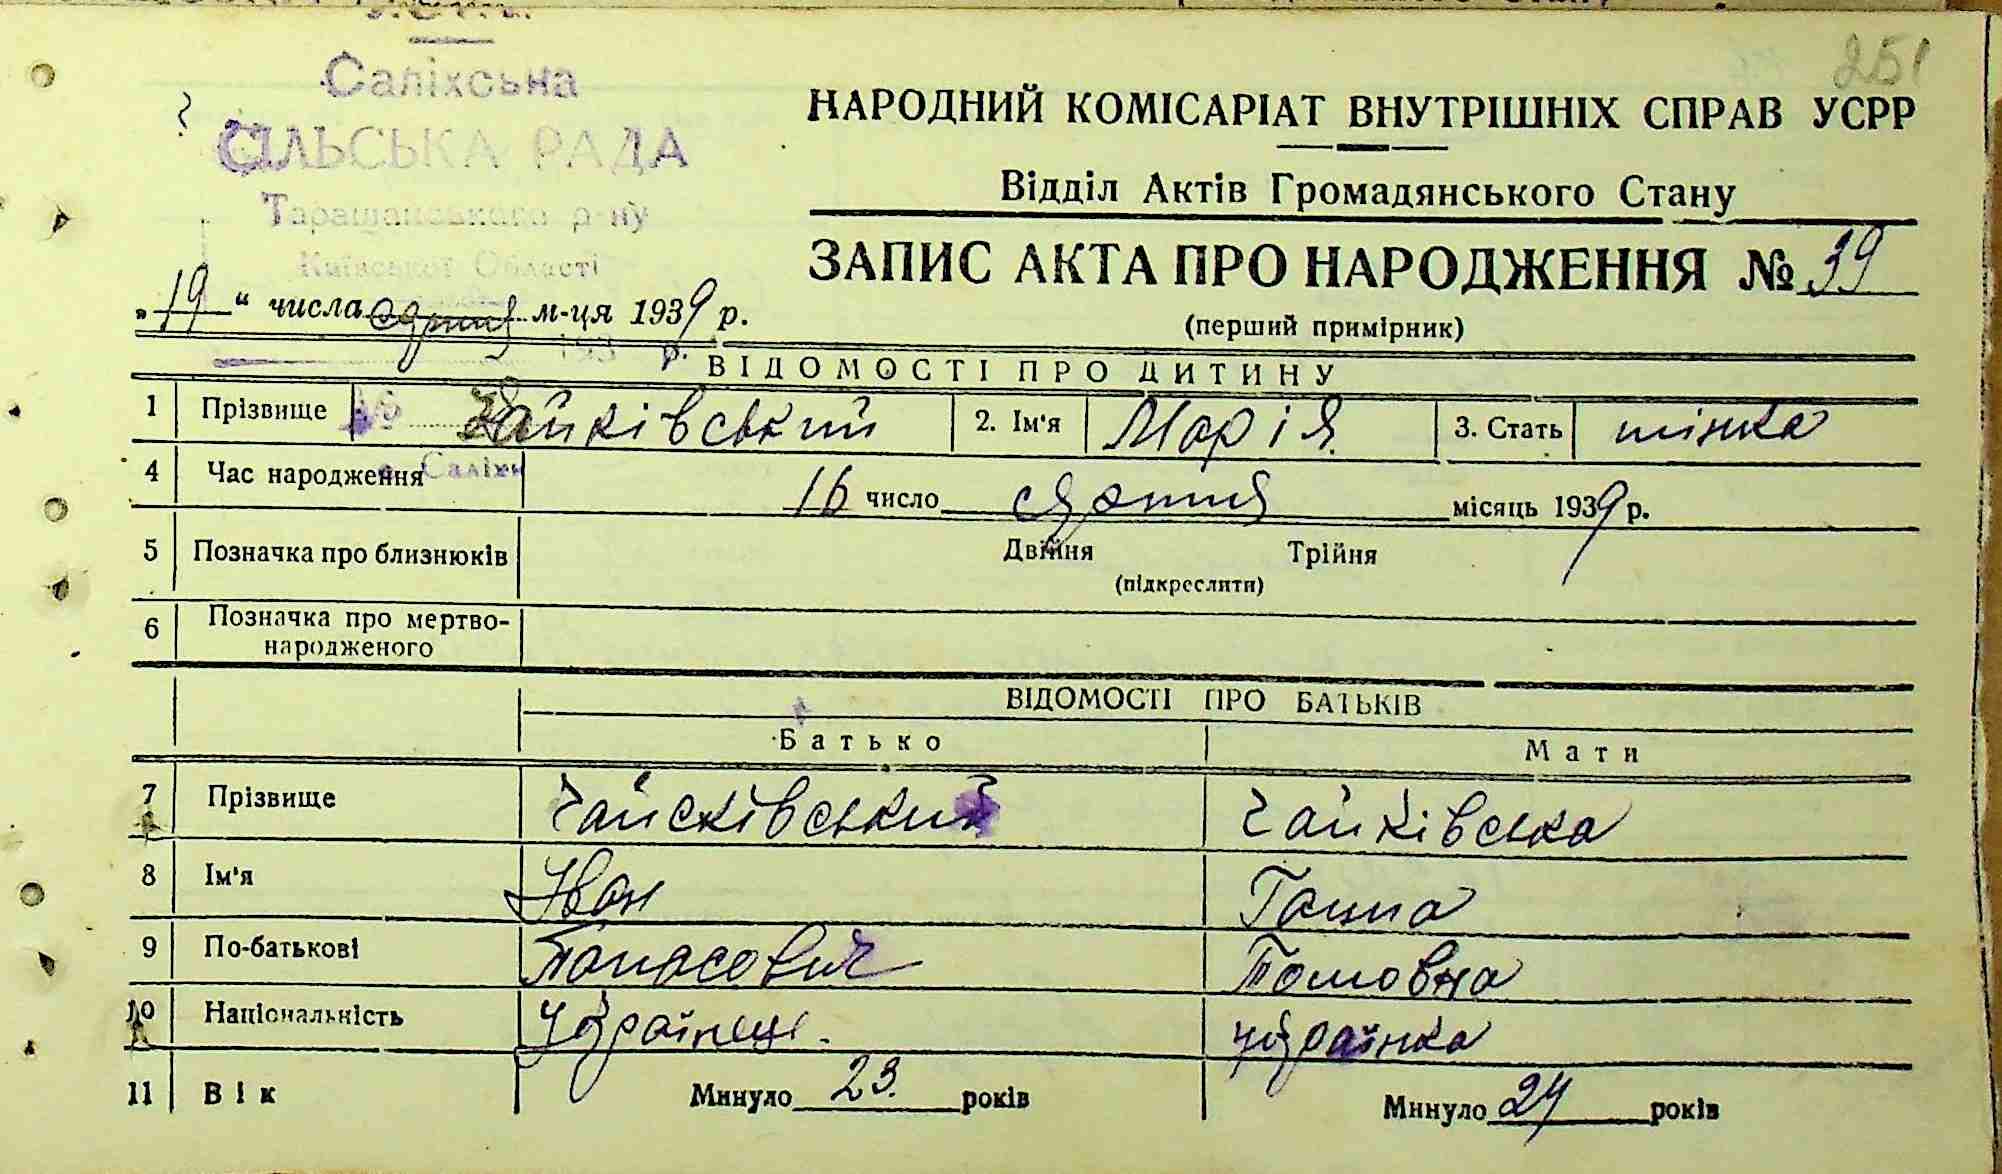 251
Саліхська
СІЛЬСЬКА РАДА
Таращанського р-ну
Київської Області
НАРОДНИЙ КОМІСАРІАТ ВНУТРІШНІХ СПРАВ УСРР
Відділ Актів Громадянського Стану
ЗАПИС АКТА ПРО НАРОДЖЕННЯ № 39
(перший примірник)
„19“ числа серпня м-ця 1939 р.
ВІДОМОСТІ ПРО ДИТИНУ
1 Прізвище Чайківський 2. Ім'я Марія 3. Стать жінка
4 Час народження 16 число серпня місяць 1939 р.
с. Саліхи
5 Позначка про близнюків Двійня Трійня
(підкреслити)
6 Позначка про мертво-
народженого
ВІДОМОСТІ ПРО БАТЬКІВ
Батько Мати
7 Прізвище Чайськівський Чайківська
8 Ім'я Іван Ганна
9 По-батькові Панасович Томовна
10 Національність Українець. українка
11 Вік Минуло 23. років Минуло 24 років